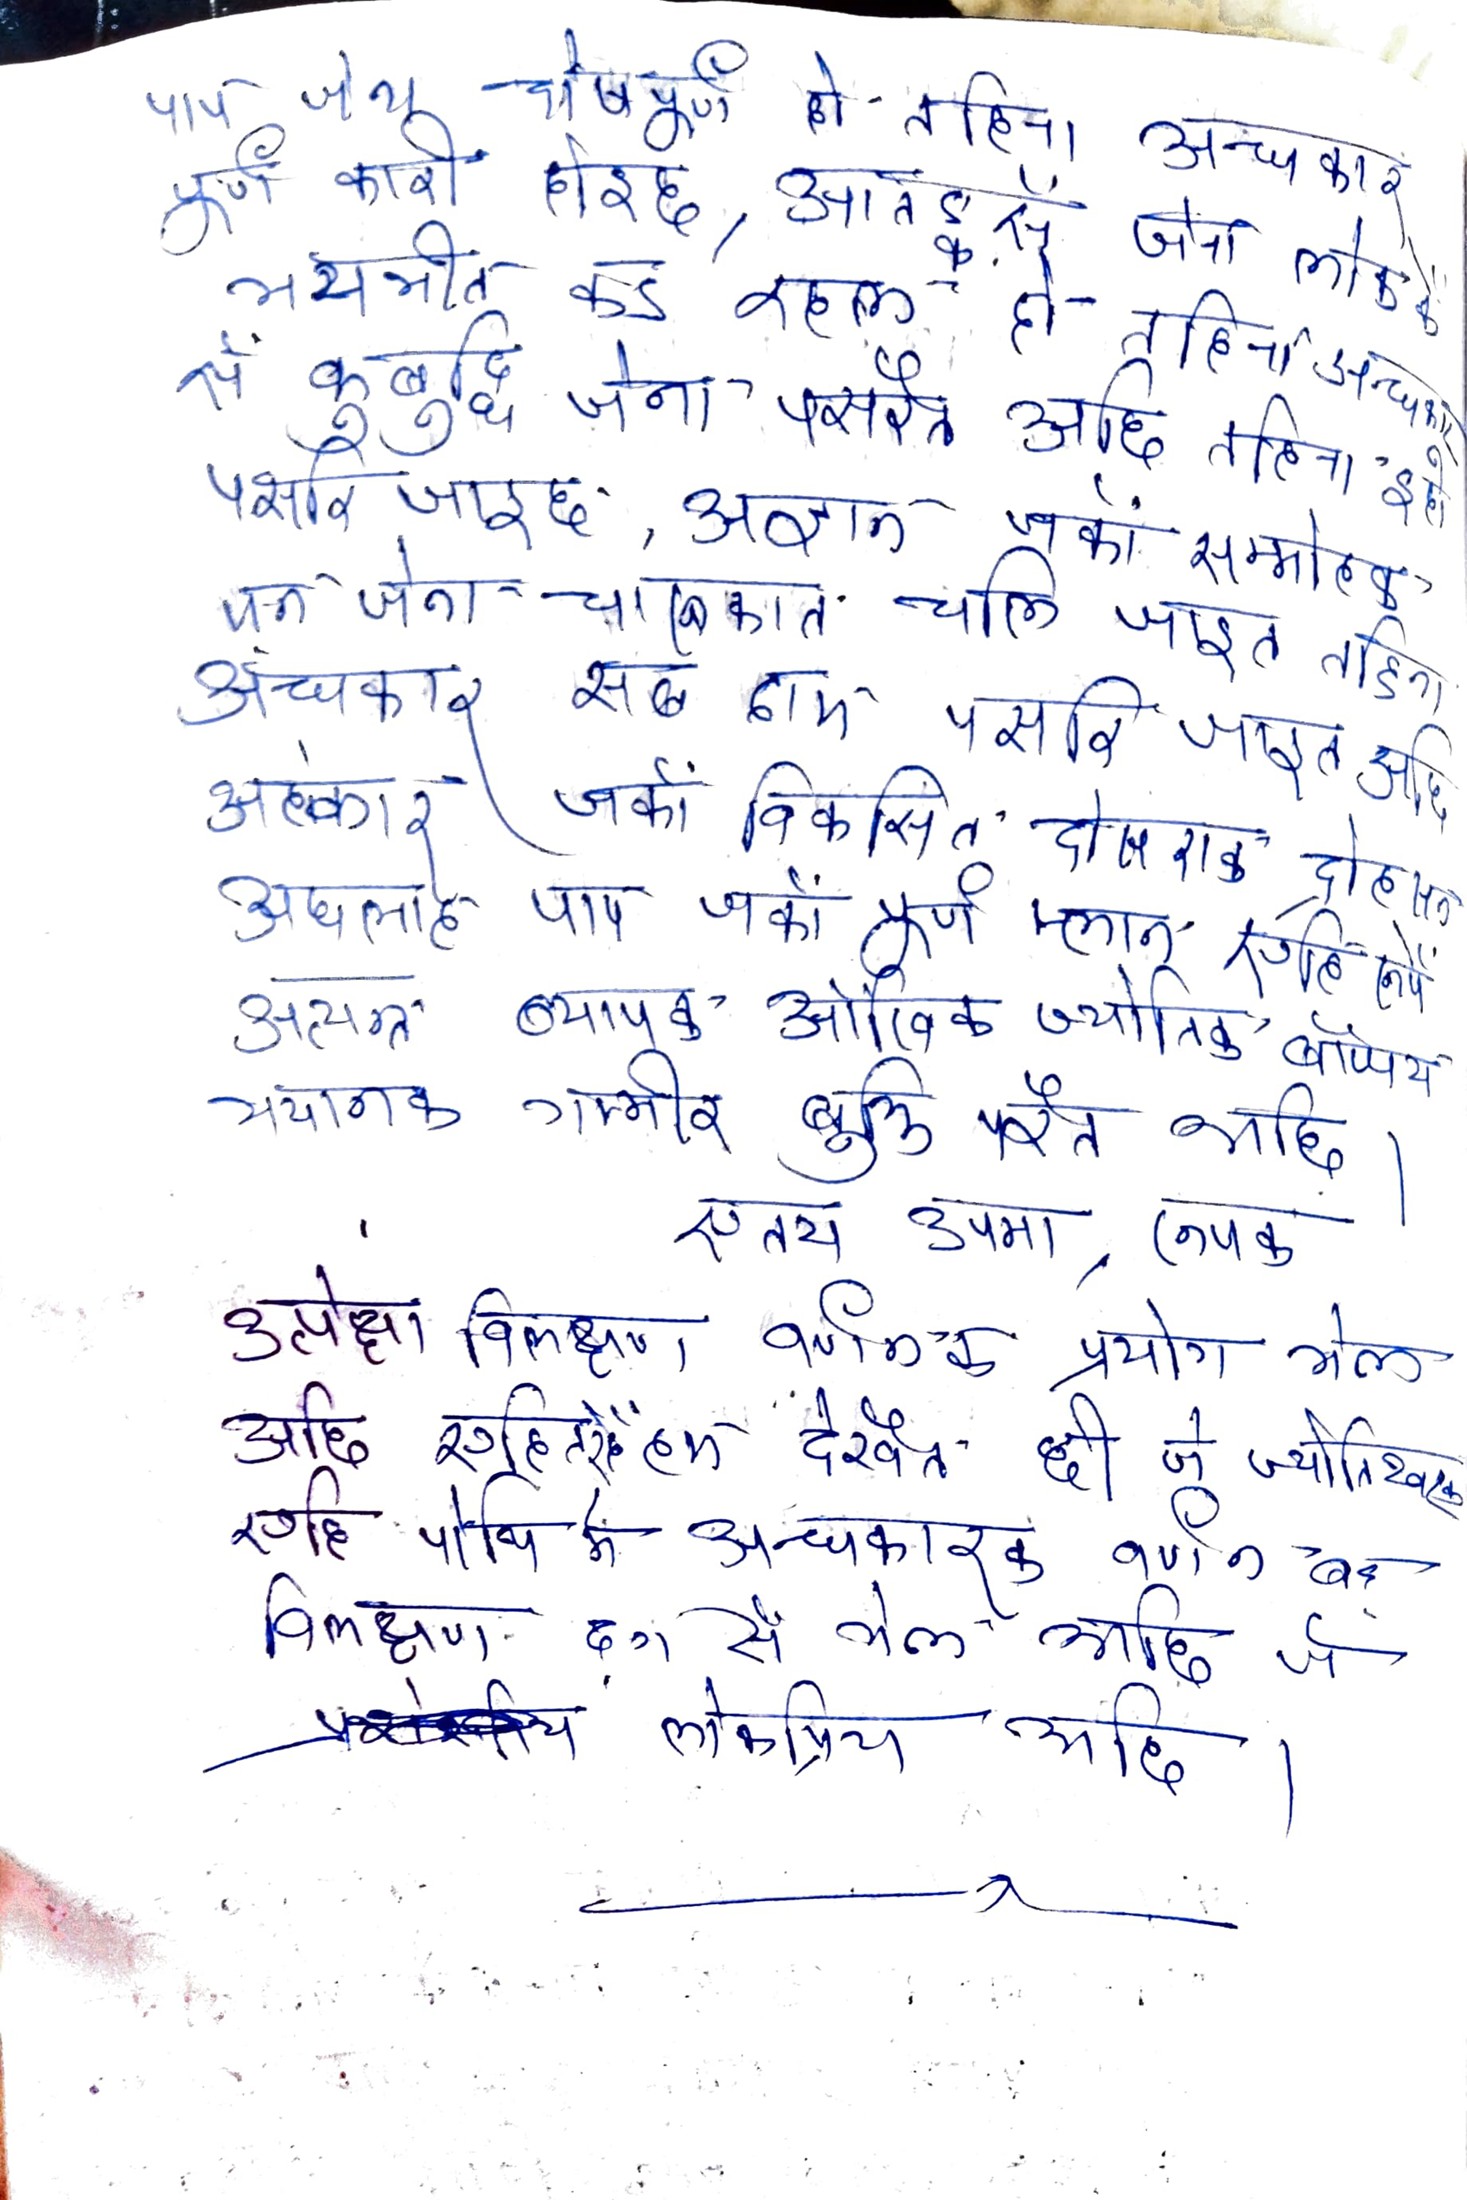 पाप जेना दोषपूर्ण हो तहिना अन्धकार
पूर्ण कारी होइछ, आतङ्क सँ जेना लोककेँ
भयभीत कऽ रहल हो तहिना अन्धकार
सँ कुबुद्धि जेना पसरैत अछि तहिना इहो
पसरि जाइछ, अज्ञान जकाँ सम्मोहक
जेना चलि जाइत तहिना
अंधकार सब ठाम पसरि जाइत अछि
अहंकार जकाँ विकसित द्रोह सन
अधलाह पाप जकाँ पूर्ण म्लान एहि रूपेँ
अत्यन्त व्यापक ज्योतिक
भयानक गम्भीर बुझि परैत अछि।
एतय उपमा, रूपक
उत्प्रेक्षा विलक्षण वर्णनक प्रयोग भेल
अछि एहितरहेँ हम देखैत छी जे
एहि पोथि मे अन्धकारक वर्णन बड़
विलक्षण ढंग सँ भेल अछि जे
लोकप्रिय अछि।